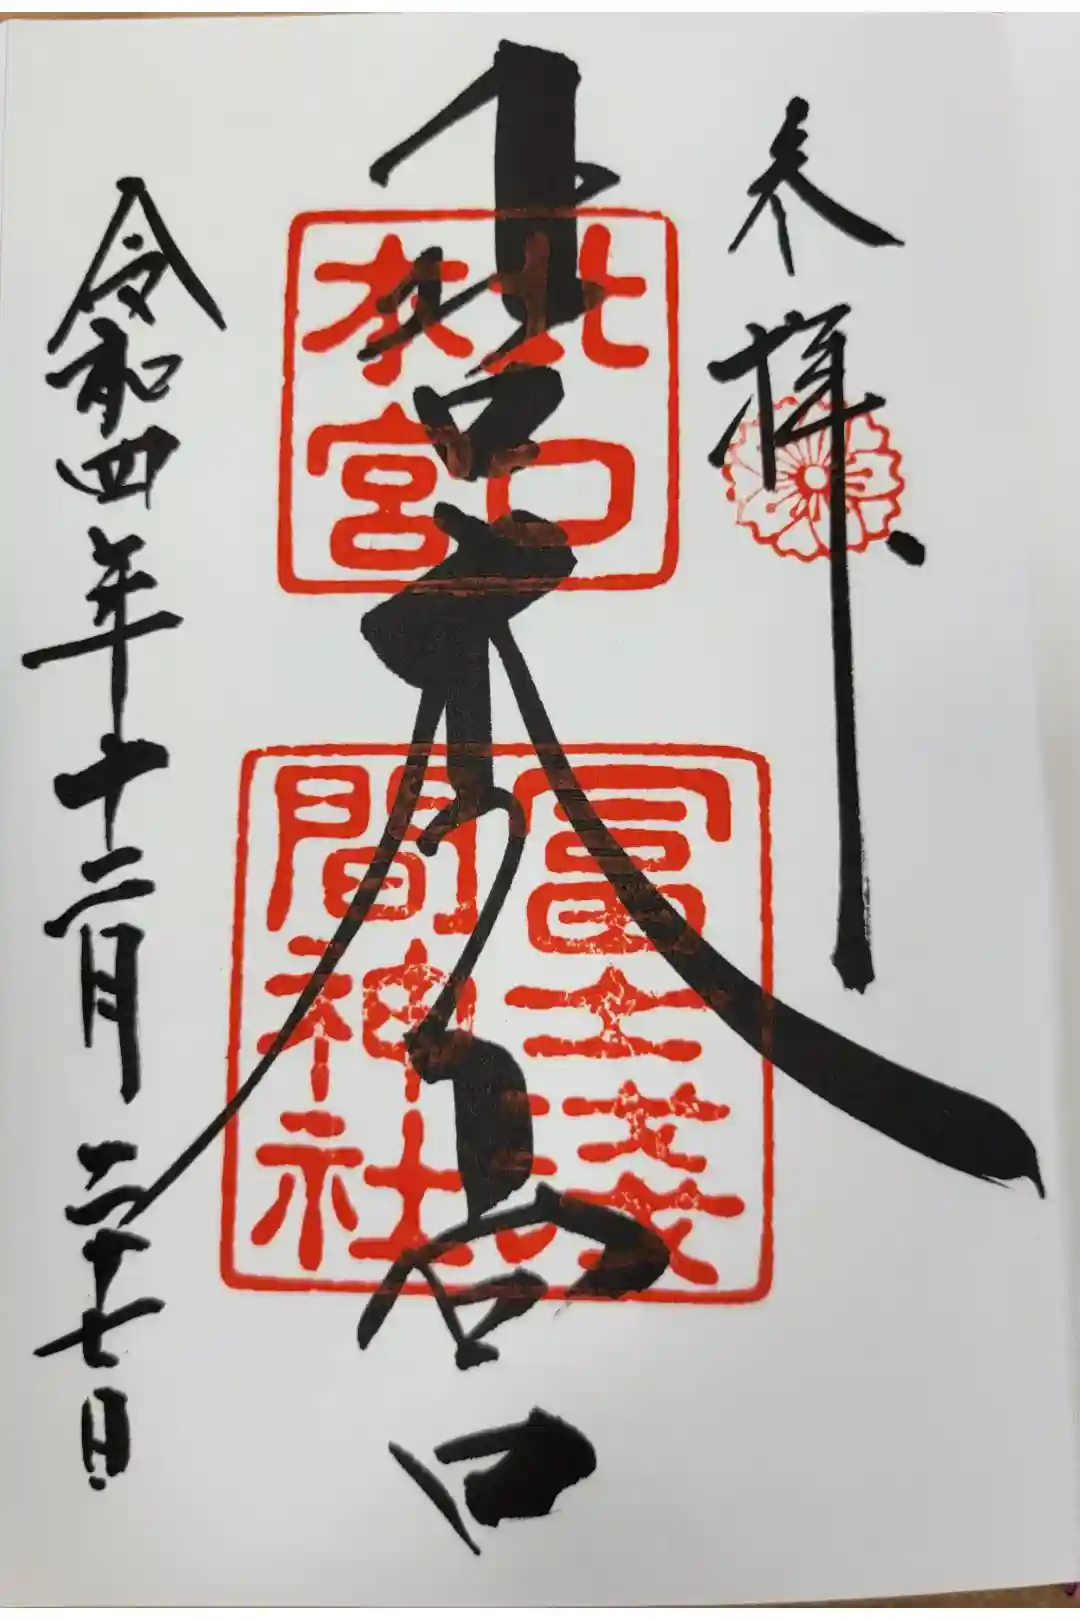 参拝
北口本宮
北口
本宮
冨士浅
間神社
令和四年十二月二十七日